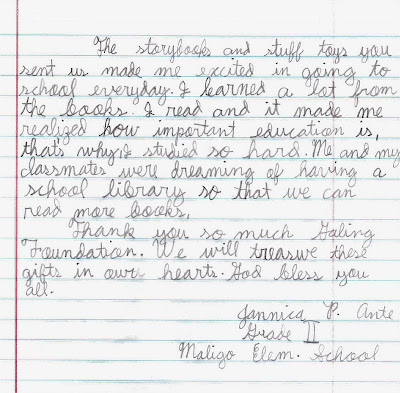 The storybooks and stuff toys you
sent us made me excited in going to
school everyday. I learned a lot from
the books. I read and it made me
realized how important education is,
that's why, I studied so hard. Me and my
classmates were dreaming of having a
school library so that we can
read more books.
Thank you so much Galing
Foundation. We will treasure these
gifts in owr hearts. God bless you
all.
Jannica P. Ante
Grade II
Maligo Elem. School